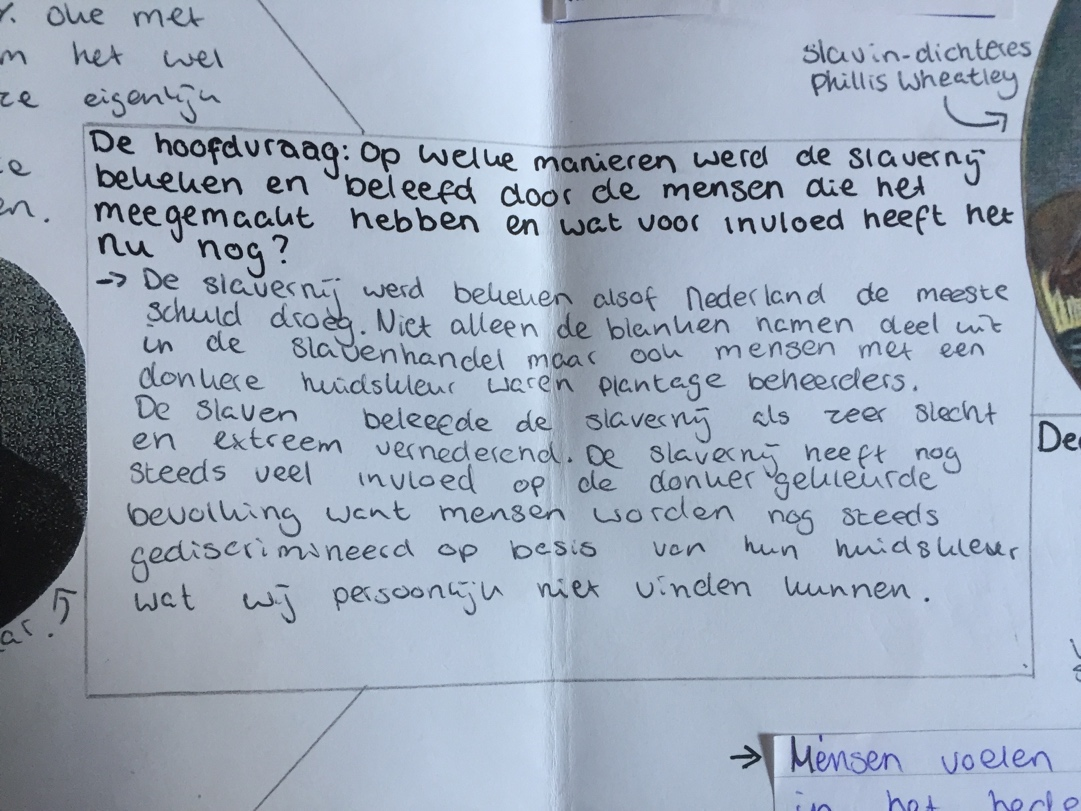 . die met
m het wel
ze eigenlijk
slavin-dichteres
Phillis Wheatley
De hoofdvraag: Op welke manieren werd de slavernij
bekeken en beleefd door de mensen die het
meegemaakt hebben en wat voor invloed heeft het
nu nog?
→ De slavernij werd bekeken alsof Nederland de meeste
schuld droeg. Niet alleen de blanken namen deel uit
in de slavenhandel maar ook mensen met een
donkere huidskleur waren plantage beheerders.
De slaven beleefde de slavernij als zeer slecht
en extreem vernederend. De slavernij heeft nog
steeds veel invloed op de donker gekleurde
bevolking want mensen worden nog steeds
gediscrimineerd op basis van hun huidskleur
wat wij persoonlijk niet vinden kunnen.
en.
ar.
De
→ Mensen voelen
in het hede